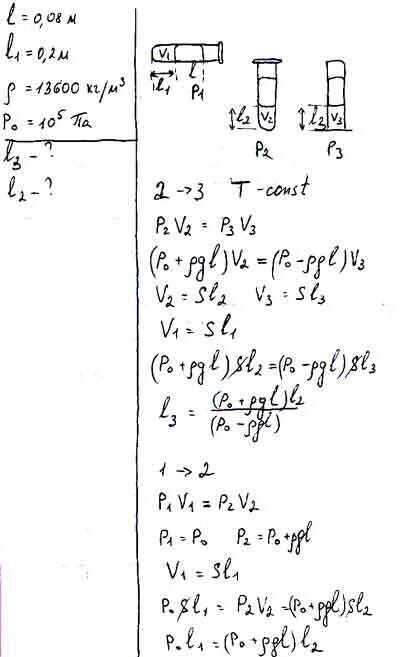 l = 0,08 м
l₁ = 0,2 м
ρ = 13600 кг/м³
P₀ = 10⁵ Па
l₃ - ?
l₂ - ?
V₁ l
l₁ P₁
l₂ V₂ l₂ V₃
P₂ P₃
2 → 3 T - const
P₂ V₂ = P₃ V₃
(P₀ + ρgl) V₂ = (P₀ - ρgl) V₃
V₂ = Sl₂ V₃ = Sl₃
V₁ = Sl₁
(P₀ + ρgl) Sl₂ = (P₀ - ρgl) Sl₃
l₃ = (P₀ + ρgl) l₂ / (P₀ - ρgl)
1 → 2
P₁ V₁ = P₂ V₂
P₁ = P₀ P₂ = P₀ + ρgl
V₁ = Sl₁
P₀ Sl₁ = P₂ V₂ = (P₀ + ρgl) Sl₂
P₀ l₁ = (P₀ + ρgl) l₂